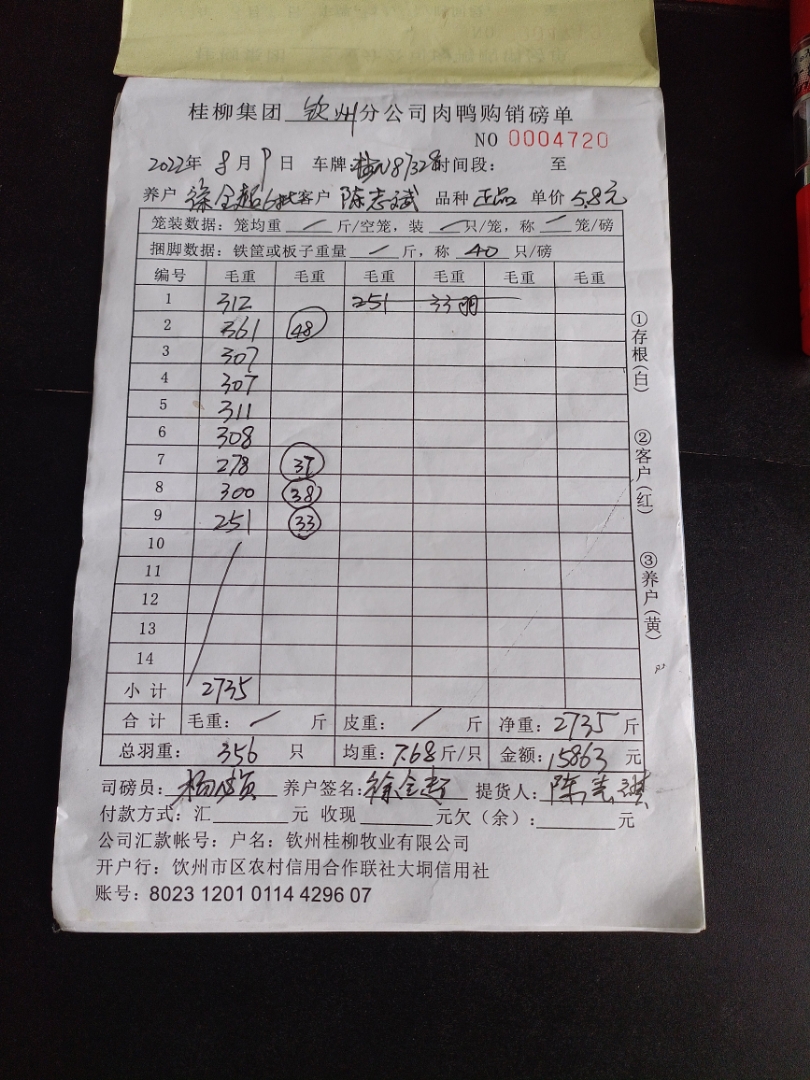 桂柳集团 钦州 分公司肉鸭购销磅单
NO 0004720
2022年 8月 9日 车牌: N8732 时间段: 至
养户 徐全超6批 客户 陈志斌 品种 正品 单价 5.8元
笼装数据: 笼均重 / 斤/空笼, 装 / 只/笼, 称 / 笼/磅
捆脚数据: 铁筐或板子重量 / 斤, 称 40 只/磅
编号 毛重 毛重 毛重 毛重 毛重 毛重
1 312 251 33羽
2 361 48
3 307
4 307
5 311
6 308
7 278 37
8 300 38
9 251 33
10
11
12
13
14
小计 2735
合计 毛重: / 斤 皮重: / 斤 净重: 2735 斤
总羽重: 356 只 均重: 7.68 斤/只 金额: 15863 元
司磅员: 养户签名: 徐全超 提货人: 陈志
付款方式: 汇 元 收现 元欠(余): 元
公司汇款帐号: 户名: 钦州桂柳牧业有限公司
开户行: 钦州市区农村信用合作联社大垌信用社
账号: 8023 1201 0114 4296 07
①存根(白)
②客户(红)
③养户(黄)